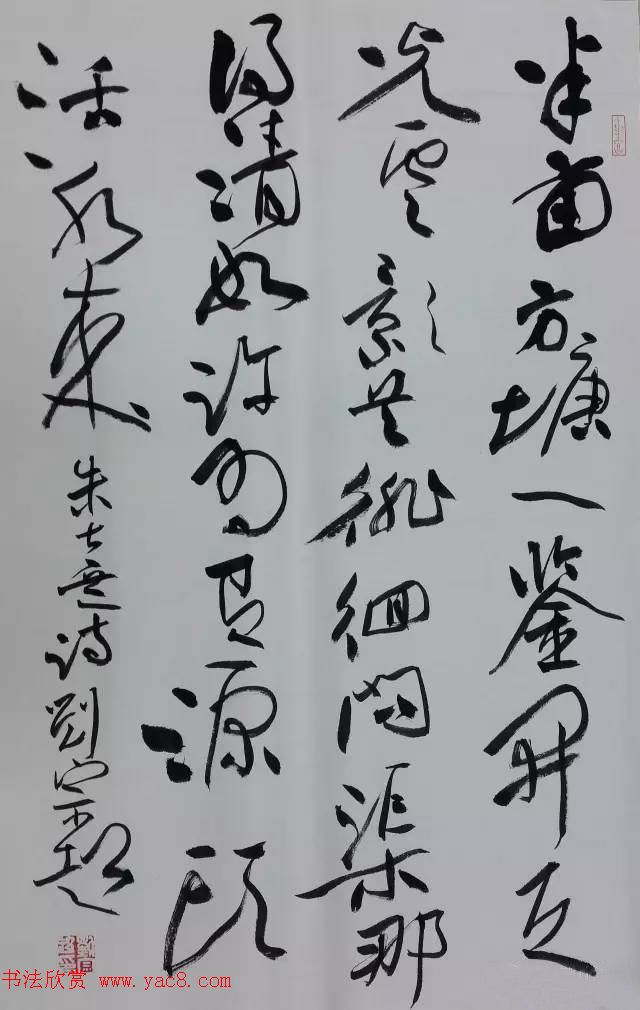 半亩方塘一鉴开天
光云影共徘徊问渠那
得清如许为有源头
活水来 朱熹诗刘宗超
书法欣赏 www.yac8.com